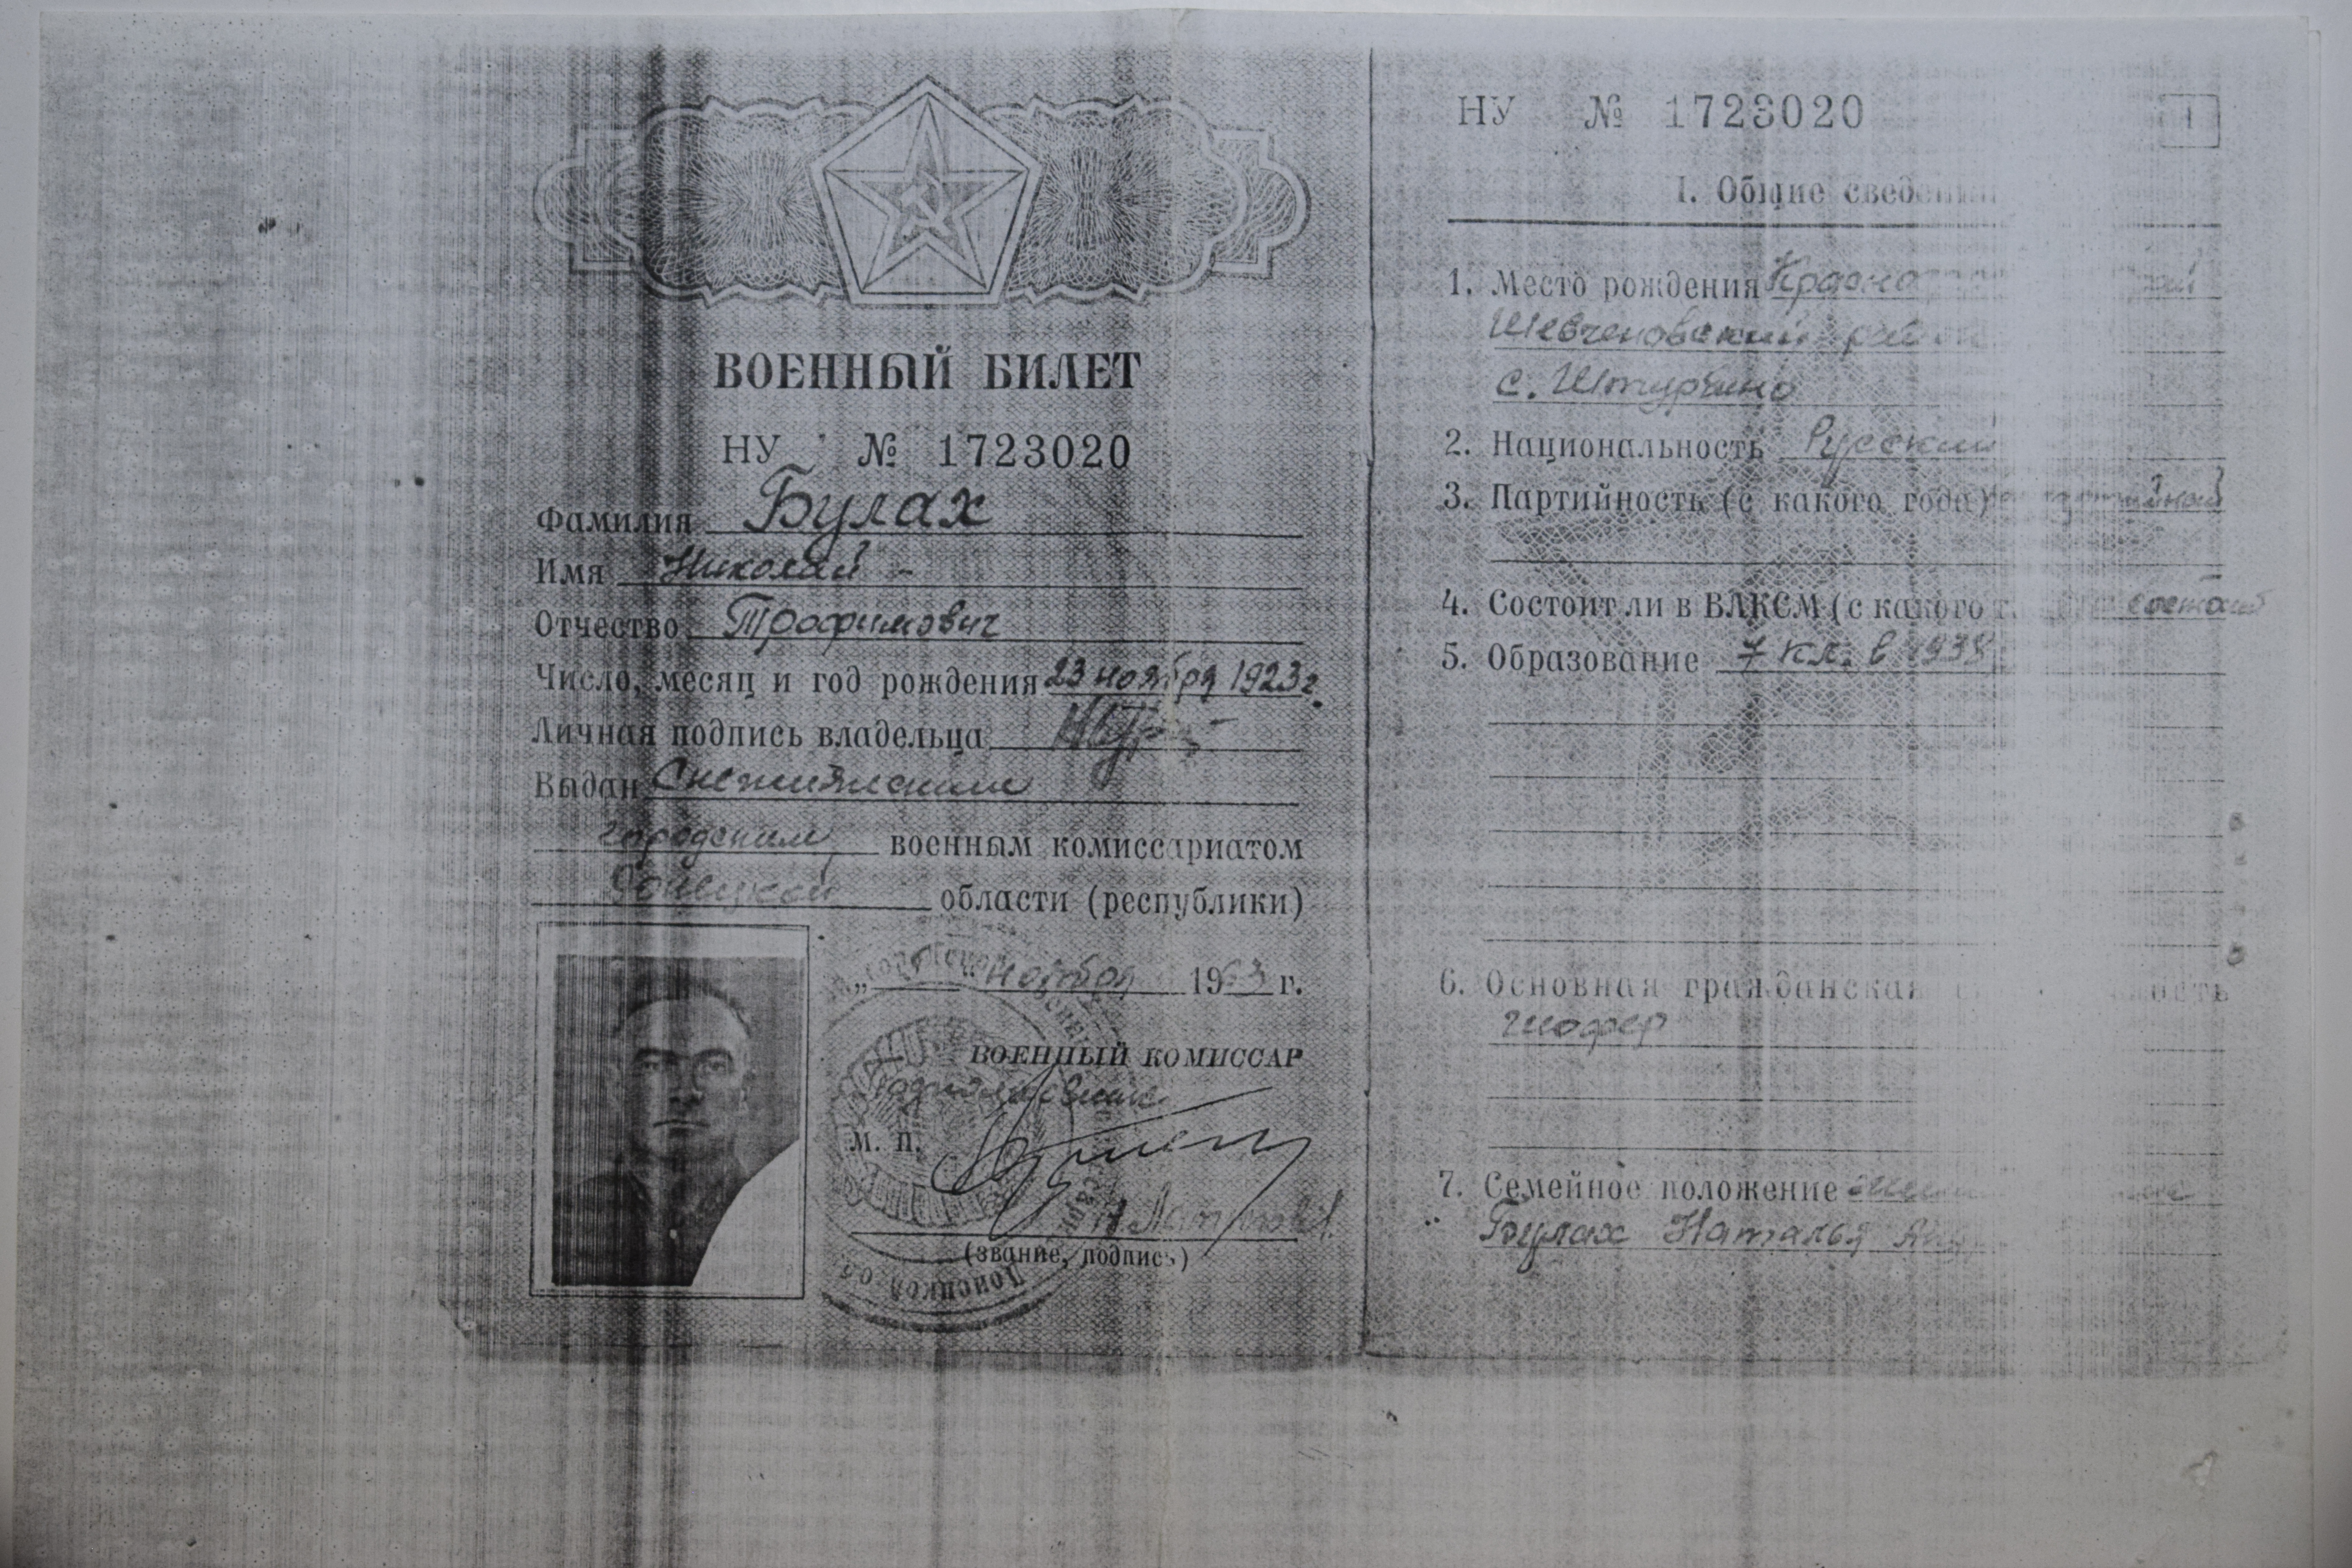 ВОЕННЫЙ БИЛЕТ
НУ № 1723020
Фамилия Булах
Имя Николай -
Отчество Трофимович
Число, месяц и год рождения 23 ноября 1923 г.
Личная подпись владельца
Выдан Снежнянским
городским военным комиссариатом
Донецкой области (республики)
" ноября 1963 г.
ВОЕННЫЙ КОМИССАР
подполковник
М. П.
(звание, подпись)
НУ № 1723020
1
I. Общие сведени
1. Место рождения Красно
Шевченовский
с.
2. Национальность Русский
3. Партийность (с какого года)
4. Состоит ли в ВЛКСМ (с какого г
5. Образование 7 кл. в 1938
6. Основная гражданская
шофер
7. Семейное положение
Булах Наталья